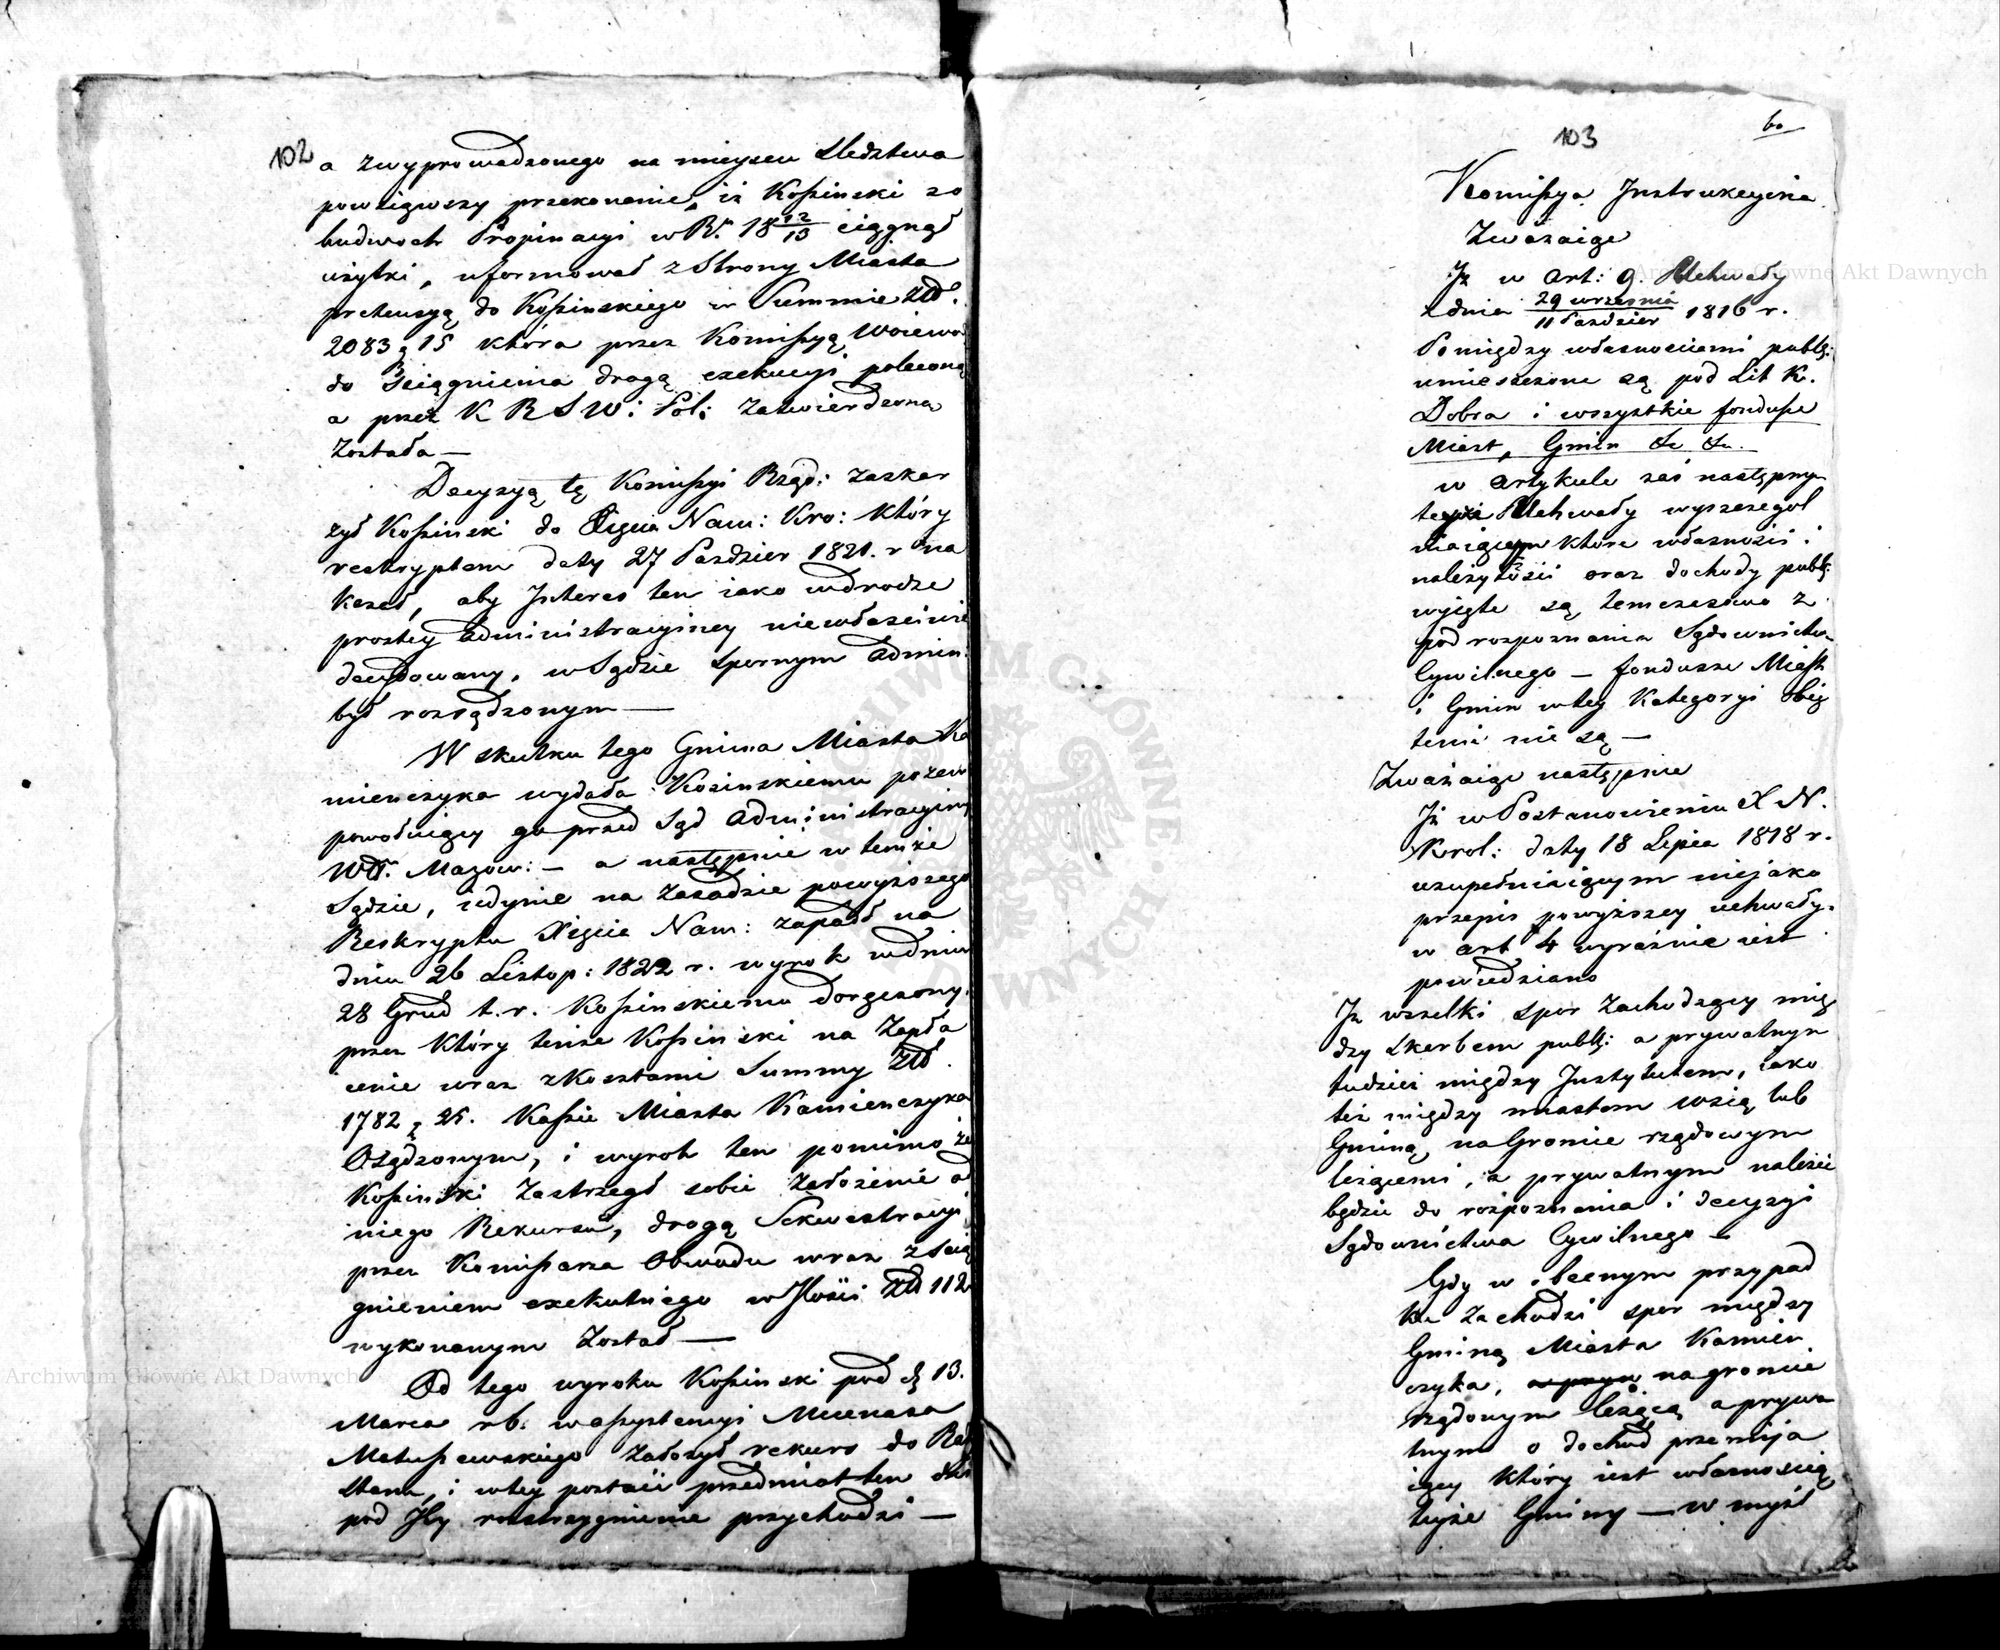 102
a zwyprowadzonego na mieyscu Sledztwa
powziąwszy przekonanie, iż Kossinski zo
budwoch Propinacyi w R. 18 12/13 ciągnął
użytki, uformował z Strony Miasta
pretensyą do Kossinskiego w Summie Złt.
2083 g 15 która przez Komissyą Woiewo
do Sciągnienia drogą exekucyi poleconą
a przez K R S W: Pol: zatwierdzoną
Została —
Decyzyą tę Komissyi Rząd: zaskar
żył Kossinski do Xięcia Nam: Kro: który
reskryptem daty 27 Paździer 1821. r na
kazał, aby Interes ten iako wdrodze
prostey administracyiney niewłaściwie
decydowany, w Sądzie spornym admin:
był rozsądzonym —
W skutku tego Gmina Miasta Ka
mienczyka wydała Kosinskiemu pozew
powołuiący go przed Sąd Administracyiny
Wdt. Mazow: — a następnie w temże
Sądzie, iedynie na zasadzie powyższego
Reskryptu Xięcia Nam: zapadł na
dniu 26 Listop: 1822 r. wyrok wdniu
28 Grud t. r. Kossinskiemu doręczony,
przez który tenże Kossinski na Zapła
cenie wraz z kosztami Summy Złt.
1782 g 25. Kassie Miasta Kamienczyka
Osądzonym, i wyrok ten pomimo że
Kossinski zastrzegł sobie założenie od
niego Rekursu, drogą Sekwestracyi
przez Komissarza Obwodu wraz z Scią
gnieniem exekutnego w Ilości Zlt 112
wykonanym Został —
Od tego wyroku Kossinski pod d 13.
Marca rb. w assystencyi Mecenasa
Matuszewskiego założył rekurs do Rady
Stanu, i wtey postaci przedmiot ten dziś
pod Jey rozstrzygnienie przychodzi —
103
60
Komissya Instrukcyina
Zważaiąc
Iż w Art: 9. Uchwały
z dnia 29 września / 11 Paździer 1816 r.
Pomiędzy własnościami publ:
umieszczone są pod Lit K.
Dobra i wszystkie fondusze
Miast, Gmin &c &c.
w artykule zaś następnym
teyże Uchwały wyszczegól
niaiącym które własności i
należytości oraz dochody publ:
wyięte są temczasowo z
pod rozpoznania Sądownictwa
Cywilnego — fondusze Miast
i Gmin w tey Kategoryi obię
temi nie są —
Zważaiąc następnie
Iż w Postanowieniu X N.
Krol: daty 18 Lipca 1818 r.
uzupełniaiącym nieiako
przepis powyższey uchwały.
w art 4 wyraźnie iest
powiedziano
Iż wszelki spor zachodzący mię
dzy Skarbem publ: a prywatnym
tudzież między Instytutem, iako
też między miastem wsią lub
Gminą, na Gruncie rządowym
leżącemi, a prywatnym należeć
będzie do rozpoznania i decyzyi
Sądownictwa Cywilnego —
Gdy w obecnym przypad
ku zachodzi spor między
Gminą Miasta Kamień
czyka, na groncie
rządowym leżącą a prywa
tnym o dochod przemija
iący który iest własnością
teyże Gminy — w myśl
Archiwum Główne Akt Dawnych
Archiwum Główne Akt Dawnych
ARCHIWUM GŁÓWNE AKT DAWNYCH